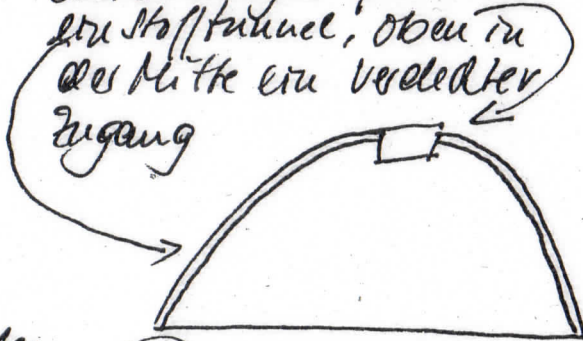 ein Stofftunnel, oben in
der Mitte ein verdeckter
Zugang